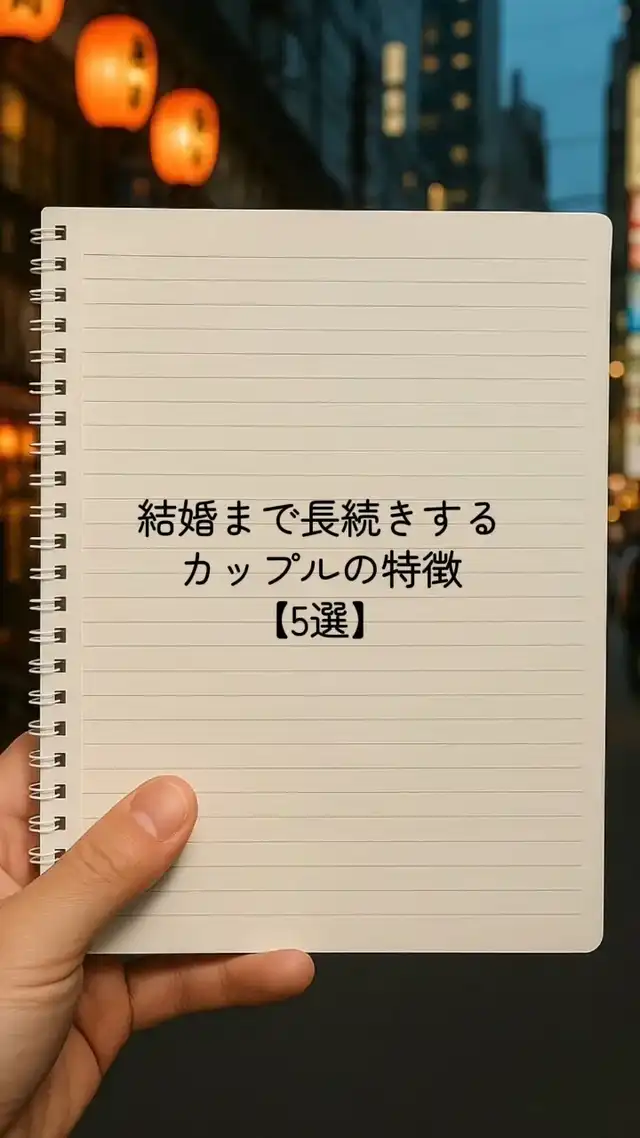 結婚まで長続きする
カップルの特徴
【5選】